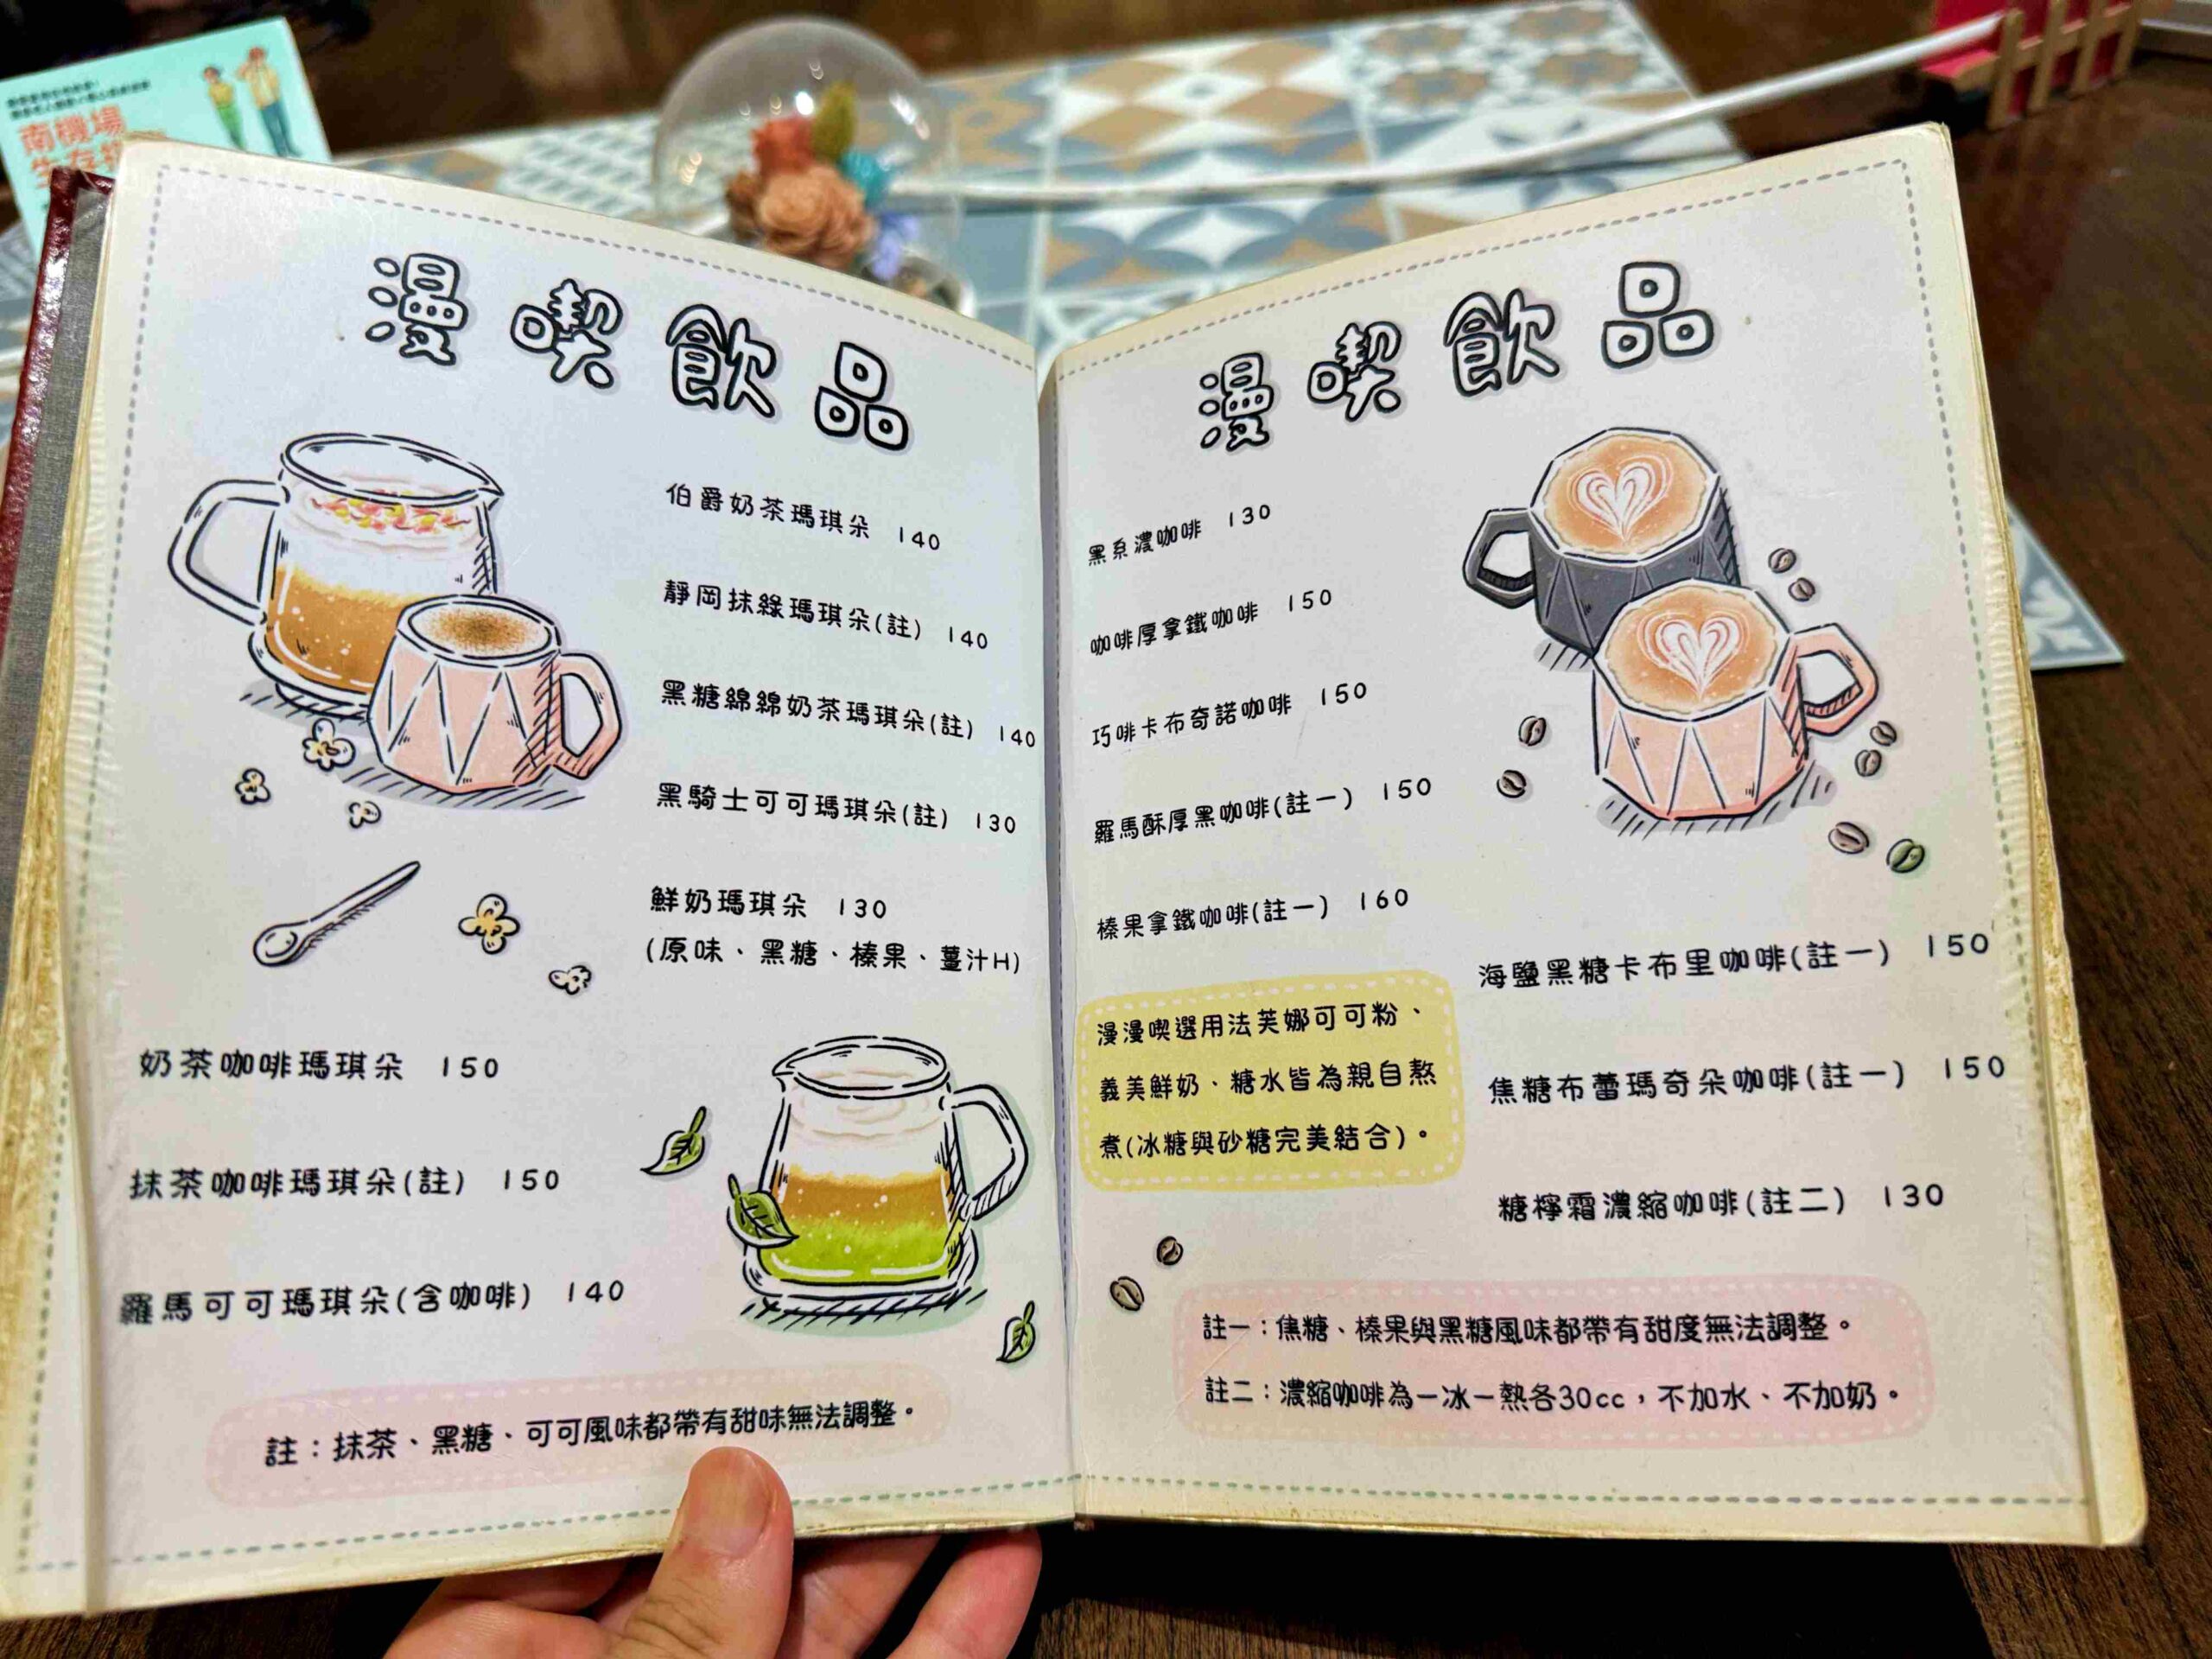 南機場
漫喫飲品
伯爵奶茶瑪琪朵 140
靜岡抹綠瑪琪朵(註) 140
黑糖綿綿奶茶瑪琪朵(註) 140
黑騎士可可瑪琪朵(註) 130
鮮奶瑪琪朵 130
(原味、黑糖、榛果、薑汁H)
奶茶咖啡瑪琪朵 150
抹茶咖啡瑪琪朵(註) 150
羅馬可可瑪琪朵(含咖啡) 140
註：抹茶、黑糖、可可風味都帶有甜味無法調整。
漫喫飲品
黑系濃咖啡 130
咖啡厚拿鐵咖啡 150
巧啡卡布奇諾咖啡 150
羅馬酥厚黑咖啡(註一) 150
榛果拿鐵咖啡(註一) 160
海鹽黑糖卡布里咖啡(註一) 150
焦糖布蕾瑪奇朵咖啡(註一) 150
糖檸霜濃縮咖啡(註二) 130
漫漫喫選用法芙娜可可粉、
義美鮮奶、糖水皆為親自熬
煮(冰糖與砂糖完美結合)。
註一：焦糖、榛果與黑糖風味都帶有甜度無法調整。
註二：濃縮咖啡為一冰一熱各30cc，不加水、不加奶。